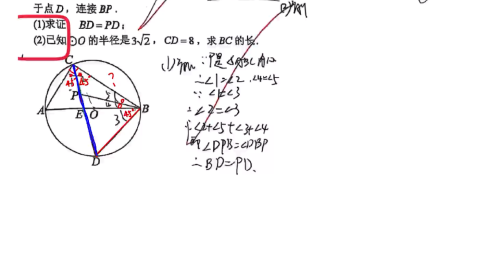 于点D，连接BP.
(1)求证 BD=PD;
(2)已知⊙O的半径是3√2，CD=8，求BC的长.
(1)
∵P是△ABC内心
∴∠1=∠2 ∠4=∠5
∵∠1=∠3
∴∠2=∠3
∴∠2+∠5=∠3+∠4
即∠DPB=∠DBP
∴BD=PD.
C
45° 45°
?
P
5
4
A
E
O
B
3
45°
D